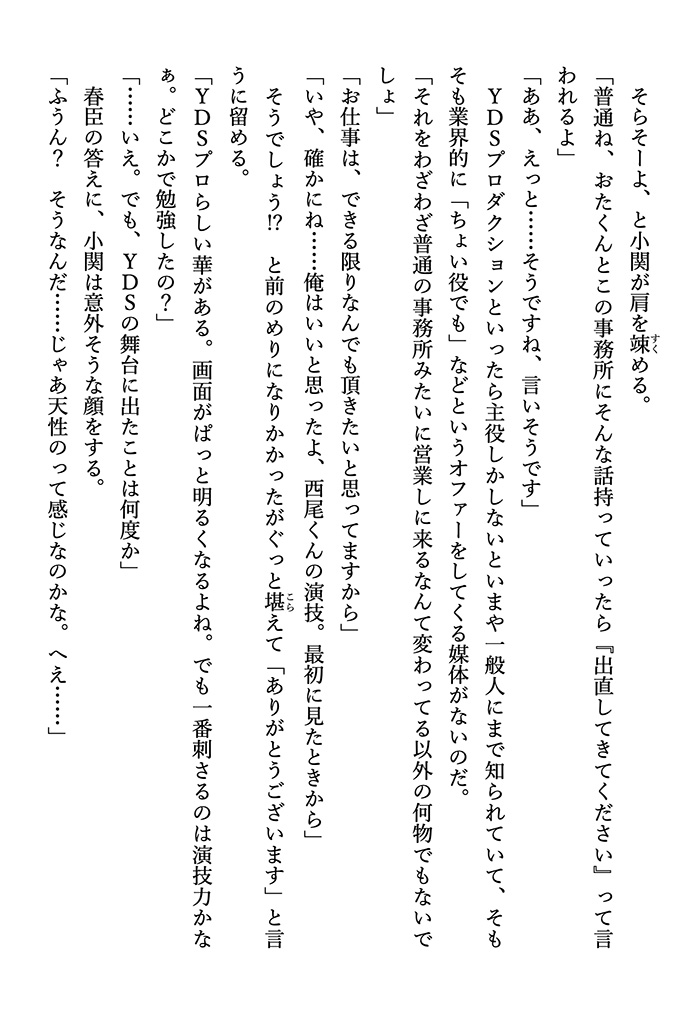 そらそーよ、と小関が肩を竦める。
「普通ね、おたくんとこの事務所にそんな話持っていったら『出直してきてください』って言
われるよ」
「ああ、えっと……そうですね、言いそうです」
YDSプロダクションといったら主役しかしないといまや一般人にまで知られていて、そも
そも業界的に「ちょい役でも」などというオファーをしてくる媒体がないのだ。
「それをわざわざ普通の事務所みたいに営業しに来るなんて変わってる以外の何物でもないで
しょ」
「お仕事は、できる限りなんでも頂きたいと思ってますから」
「いや、確かにね……俺はいいと思ったよ、西尾くんの演技。最初に見たときから」
そうでしょう!?　と前のめりになりかかったがぐっと堪えて「ありがとうございます」と言
うに留める。
「YDSプロらしい華がある。画面がぱっと明るくなるよね。でも一番刺さるのは演技力かな
ぁ。どこかで勉強したの？」
「……いえ。でも、YDSの舞台に出たことは何度か」
春臣の答えに、小関は意外そうな顔をする。
「ふうん？　そうなんだ……じゃあ天性のって感じなのかな。へえ……」